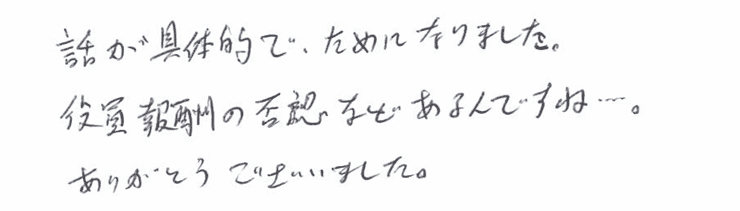 話が具体的で、ためになりました。
役員報酬の否認などあるんですね…。
ありがとうございました。